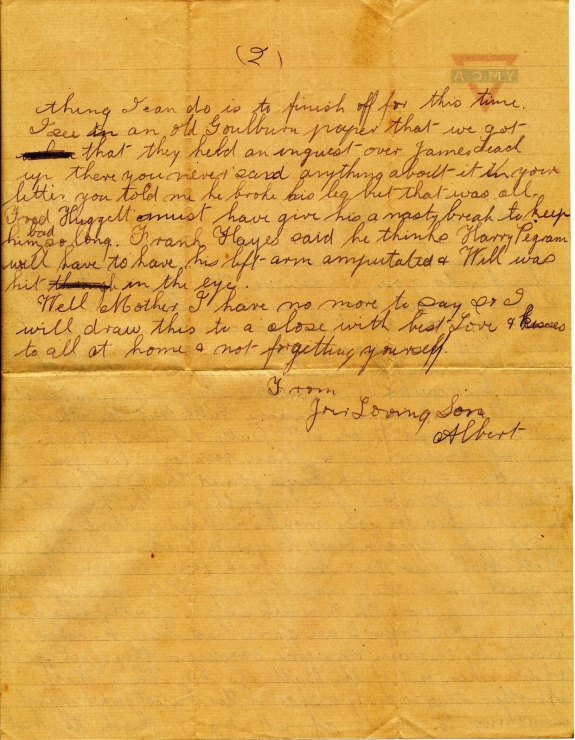 (2)
Y.M.C.A
thing I can do is to finish off for this time.
I see in an old Goulburn paper that we got
that they held an inquest over James Lead
up there you never said anything about it in your
letter you told me he broke his leg but that was all,
Fred Huggett must have give his a nasty break to keep
him so long. Frank Hayes said he thinks Harry Pegram
bad
will have to have his left arm amputated & Will was
hit in the eye.
Well Mother I have no more to say so I
will draw this to a close with best Love & kisses
to all at home & not forgetting yourself.
From
Your Loving Son
Albert